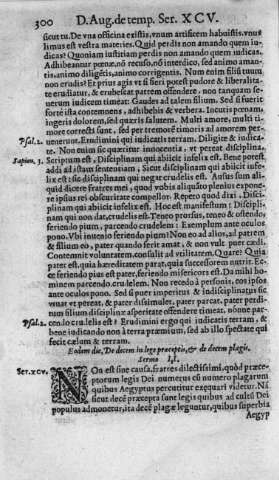 300 D. Aug. de temp. Ser. XCV.
sicut tu. De vna officina existis, vnum artificem habuistis. vnus
limus est vestra mater. Quid perdit non amando quem iu-
dicas? Quoniam iustitiam perdit non amando quem iudicas.
Adhibeantur pœnæ, nō recuso, nō interdico, sed animo aman-
tis, animo diligētis, animo corrigentis. Num enim filiū tuum,
non erudis? Et prius agis vt si fieri potest pudore & liberalita-
te erudiatur, & erubescat patrem offendere, non tanquam se-
uerum iudicem timeat: Gaudes ad talem filium. Sed si fuerit
forte ista contemnens, adhibebis & verbera. Incutis pœnam,
ingeris dolorem, sed quæris salutem. Multi amore, multi ti-
more correcti sunt, sed per tremorē timoris ad amorem per-
Psal. 2. uenerunt. Erudimini qui iudicatis terram. Diligite & iudica-
te. Non enim sic quæritur innocentia, vt pereat disciplina.
Sapien. 3. Scriptum est, Disciplinam qui abiicit infelix est. Bene potest
addi ad istam sententiam, Sicut disciplinam qui abiicit infe-
lix est: sic disciplinam qui negat crudelis est. Ausus sum ali-
quid dicere fratres mei, quod vobis aliquāto pleniu expone-
re ipsius rei obscuritate compellor. Repeto quod dixi, Disci-
plinam qui abiicit infelix est. Hoc est manifestum: Discipli-
nam qui non dat, crudelis est. Teneo prorsus, teneo & ostendo,
feriendo pium, parcendo crudelem: Exemplum ante oculos
pono. Vbi inuenio feriendo pium? Non eo ad alios, ad patrem
& filium eo, pater quando ferit amat, & non vult puer cædi.
Contemnit voluntatem, consulit ad vtilitatem. Quare? Quia
pater est, quia hæreditatem parat, quia successorem nutrit. Ec-
ce feriendo pius est pater, feriendo misericors est. Da mihi ho-
minem parcendo crudelem. Non recedo à personis, eos ipsos
ante oculos pono. Sed si puer imperitus & indisciplinatus sic
viuat vt pereat, & pater dissimulet, pater parcat, pater perdi-
tum filium disciplinæ asperitate offendere timeat, nonne par-
Psal. 2. cendo crudelis est? Erudimini ergo qui iudicatis terram, &
bene iudicando non à terra præmium, sed ab illo spectate qui
fecit cælum & terram.
Eodem die, De decem in lege præceptis, & de decem plagis,
Sermo II.
Ser. XCV. NOn est sine causa, fratres dilectissimi, quòd præce-
ptorum legis Dei numerus cū numero plagarum
quibus Aegyptus percutitur exequari videtur. Nā
sicut decē præcepta sunt legis quibus ad cultū Dei
populus admonetur, ita decē plagæ leguntur, quibus superbia
Aegyp